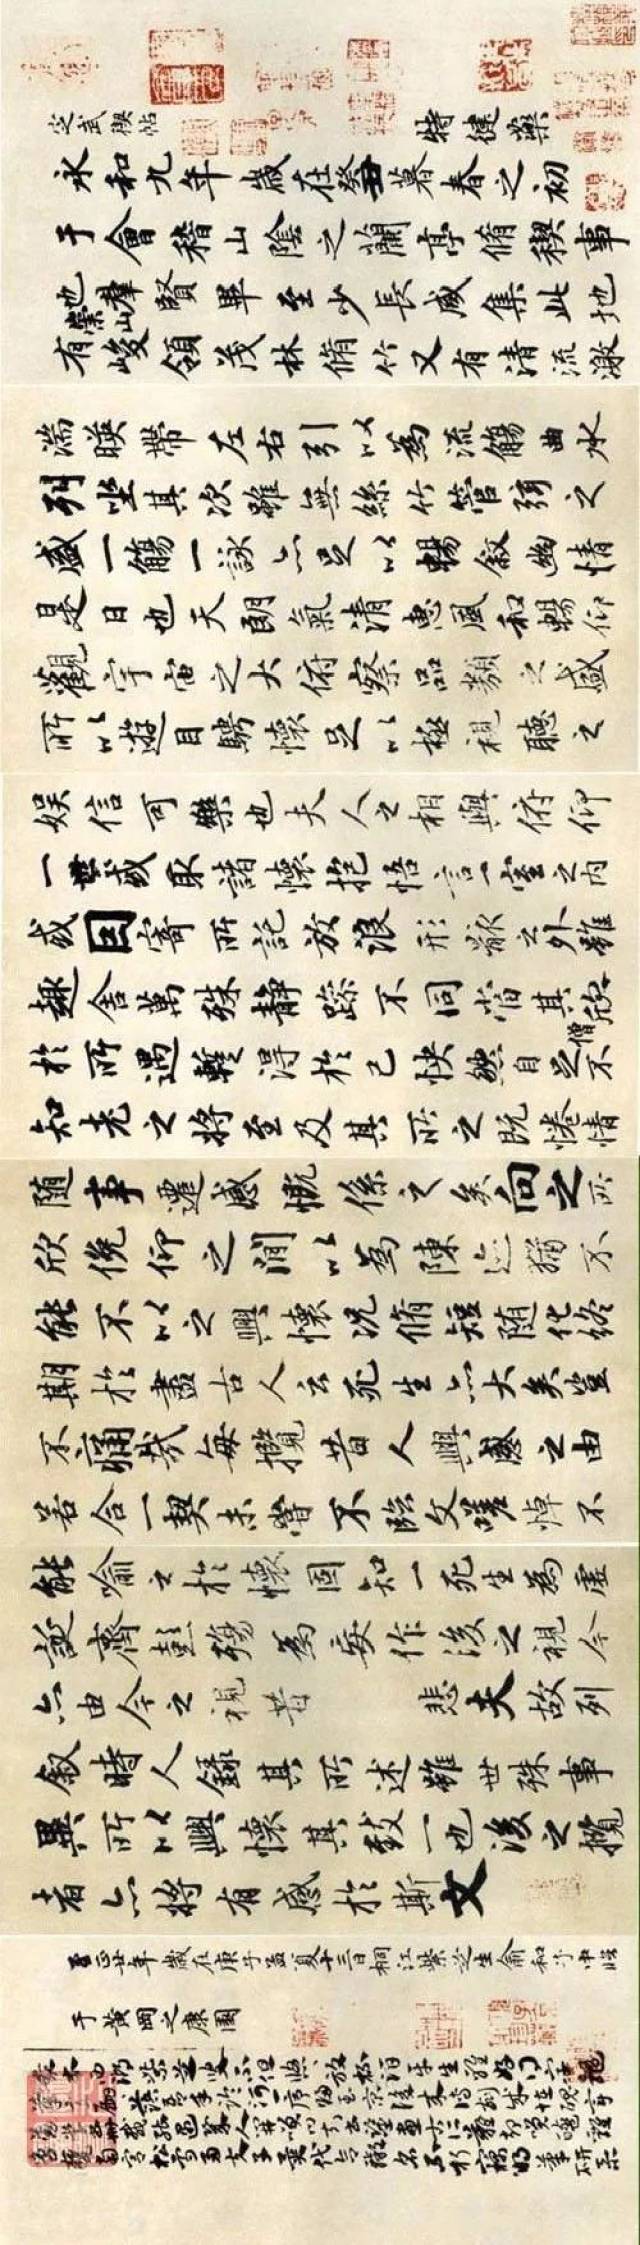 定武禊帖
特健藥
永和九年歲在癸丑暮春之初
于會稽山陰之蘭亭脩稧事
也羣賢畢至少長咸集此地
有崇山峻領茂林脩竹又有清流激
湍暎帶左右引以為流觴曲水
列坐其次雖無絲竹管弦之
盛一觴一詠亦足以暢敘幽情
是日也天朗氣清惠風和暢仰
觀宇宙之大俯察品類之盛
所以遊目騁懷足以極視聽之
娛信可樂也夫人之相與俯仰
一世或取諸懷抱悟言一室之內
或因寄所託放浪形骸之外雖
趣舍萬殊靜躁不同當其欣
於所遇蹔得於己怏然自足不
僧
知老之將至及其所之既惓情
隨事遷感慨係之矣向之所
欣俛仰之閒以為陳迹猶不
能不以之興懷況脩短隨化終
期於盡古人云死生亦大矣豈
不痛哉每攬昔人興感之由
若合一契未嘗不臨文嗟悼不
能喻之於懷固知一死生為虛
誕齊彭殤為妄作後之視今
亦由今之視昔 悲夫故列
敘時人錄其所述雖世殊事
異所以興懷其致一也後之攬
者亦將有感於斯文
至正廿年歲在庚子孟夏十三日桐江紫芝生俞和子中臨
于黃岡之康園